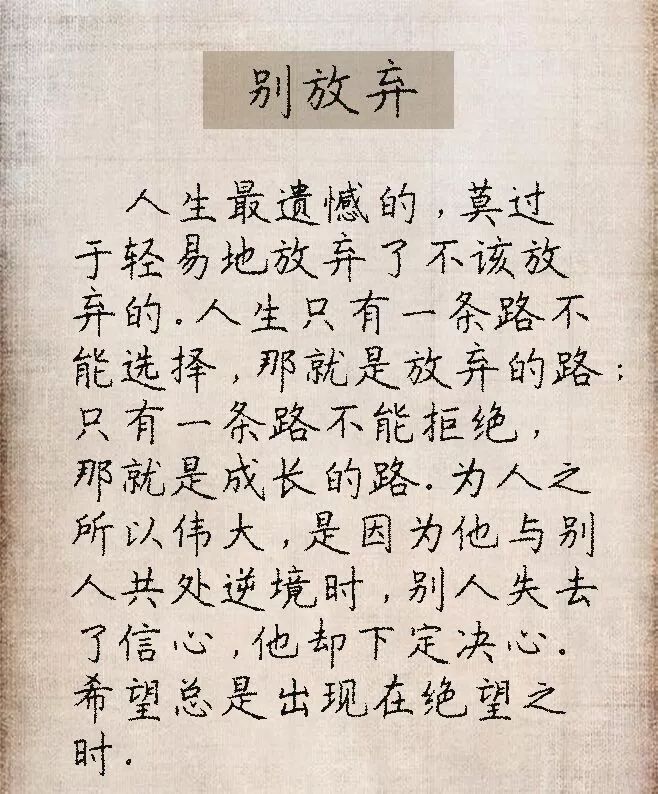 别放弃
人生最遗憾的,莫过
于轻易地放弃了不该放
弃的.人生只有一条路不
能选择,那就是放弃的路;
只有一条路不能拒绝,
那就是成长的路.为人之
所以伟大,是因为他与别
人共处逆境时,别人失去
了信心,他却下定决心.
希望总是出现在绝望之
时.